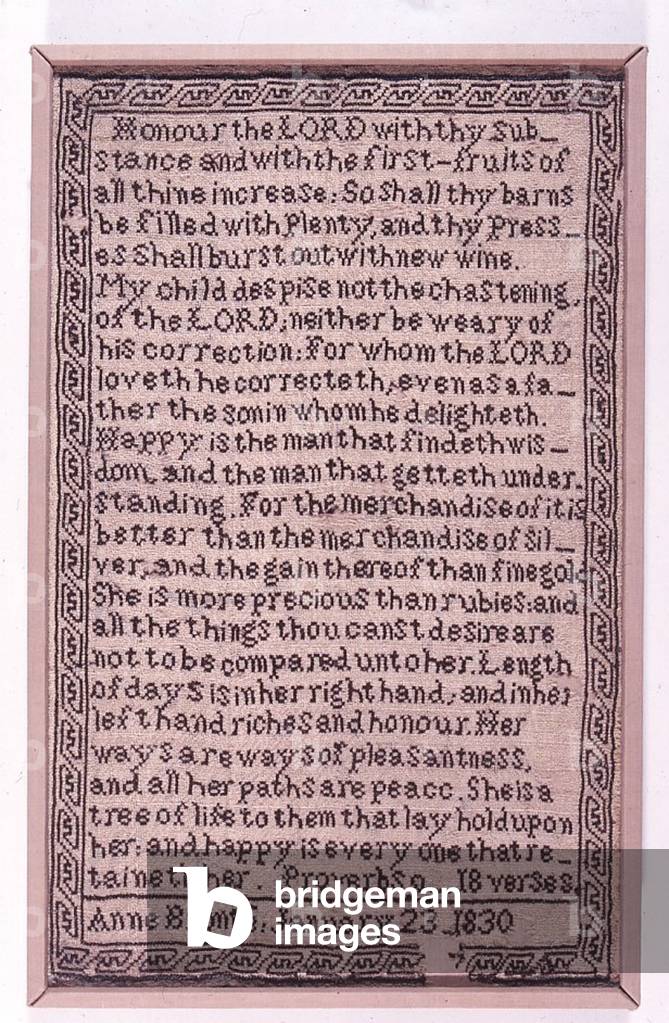 Honour the LORD with thy Sub_
stance and with the first-fruits of
all thine increase: So shall thy barns
be filled with Plenty, and thy Press_
es Shall burst out with new wine.
My child despise not the chastening,
of the LORD; neither be weary of
his correction: For whom the LORD
loveth he correcteth, even as a fa_
ther the son in whom he delighteth.
Happy is the man that findeth wis_
dom, and the man that getteth under.
standing. For the merchandise of it is
better than the merchandise of Sil_
ver, and the gain thereof than fine gold
She is more precious than rubies: and
all the things thou canst desire are
not to be compared unto her. Length
of days is in her right hand; and in her
left hand riches and honour. Her
ways are ways of pleasantness,
and all her paths are peace. She is a
tree of life to them that lay hold upon
her: and happy is every one that re_
taineth her. Proverbs 18 verses.
Anne January 23 1830
b bridgeman
images